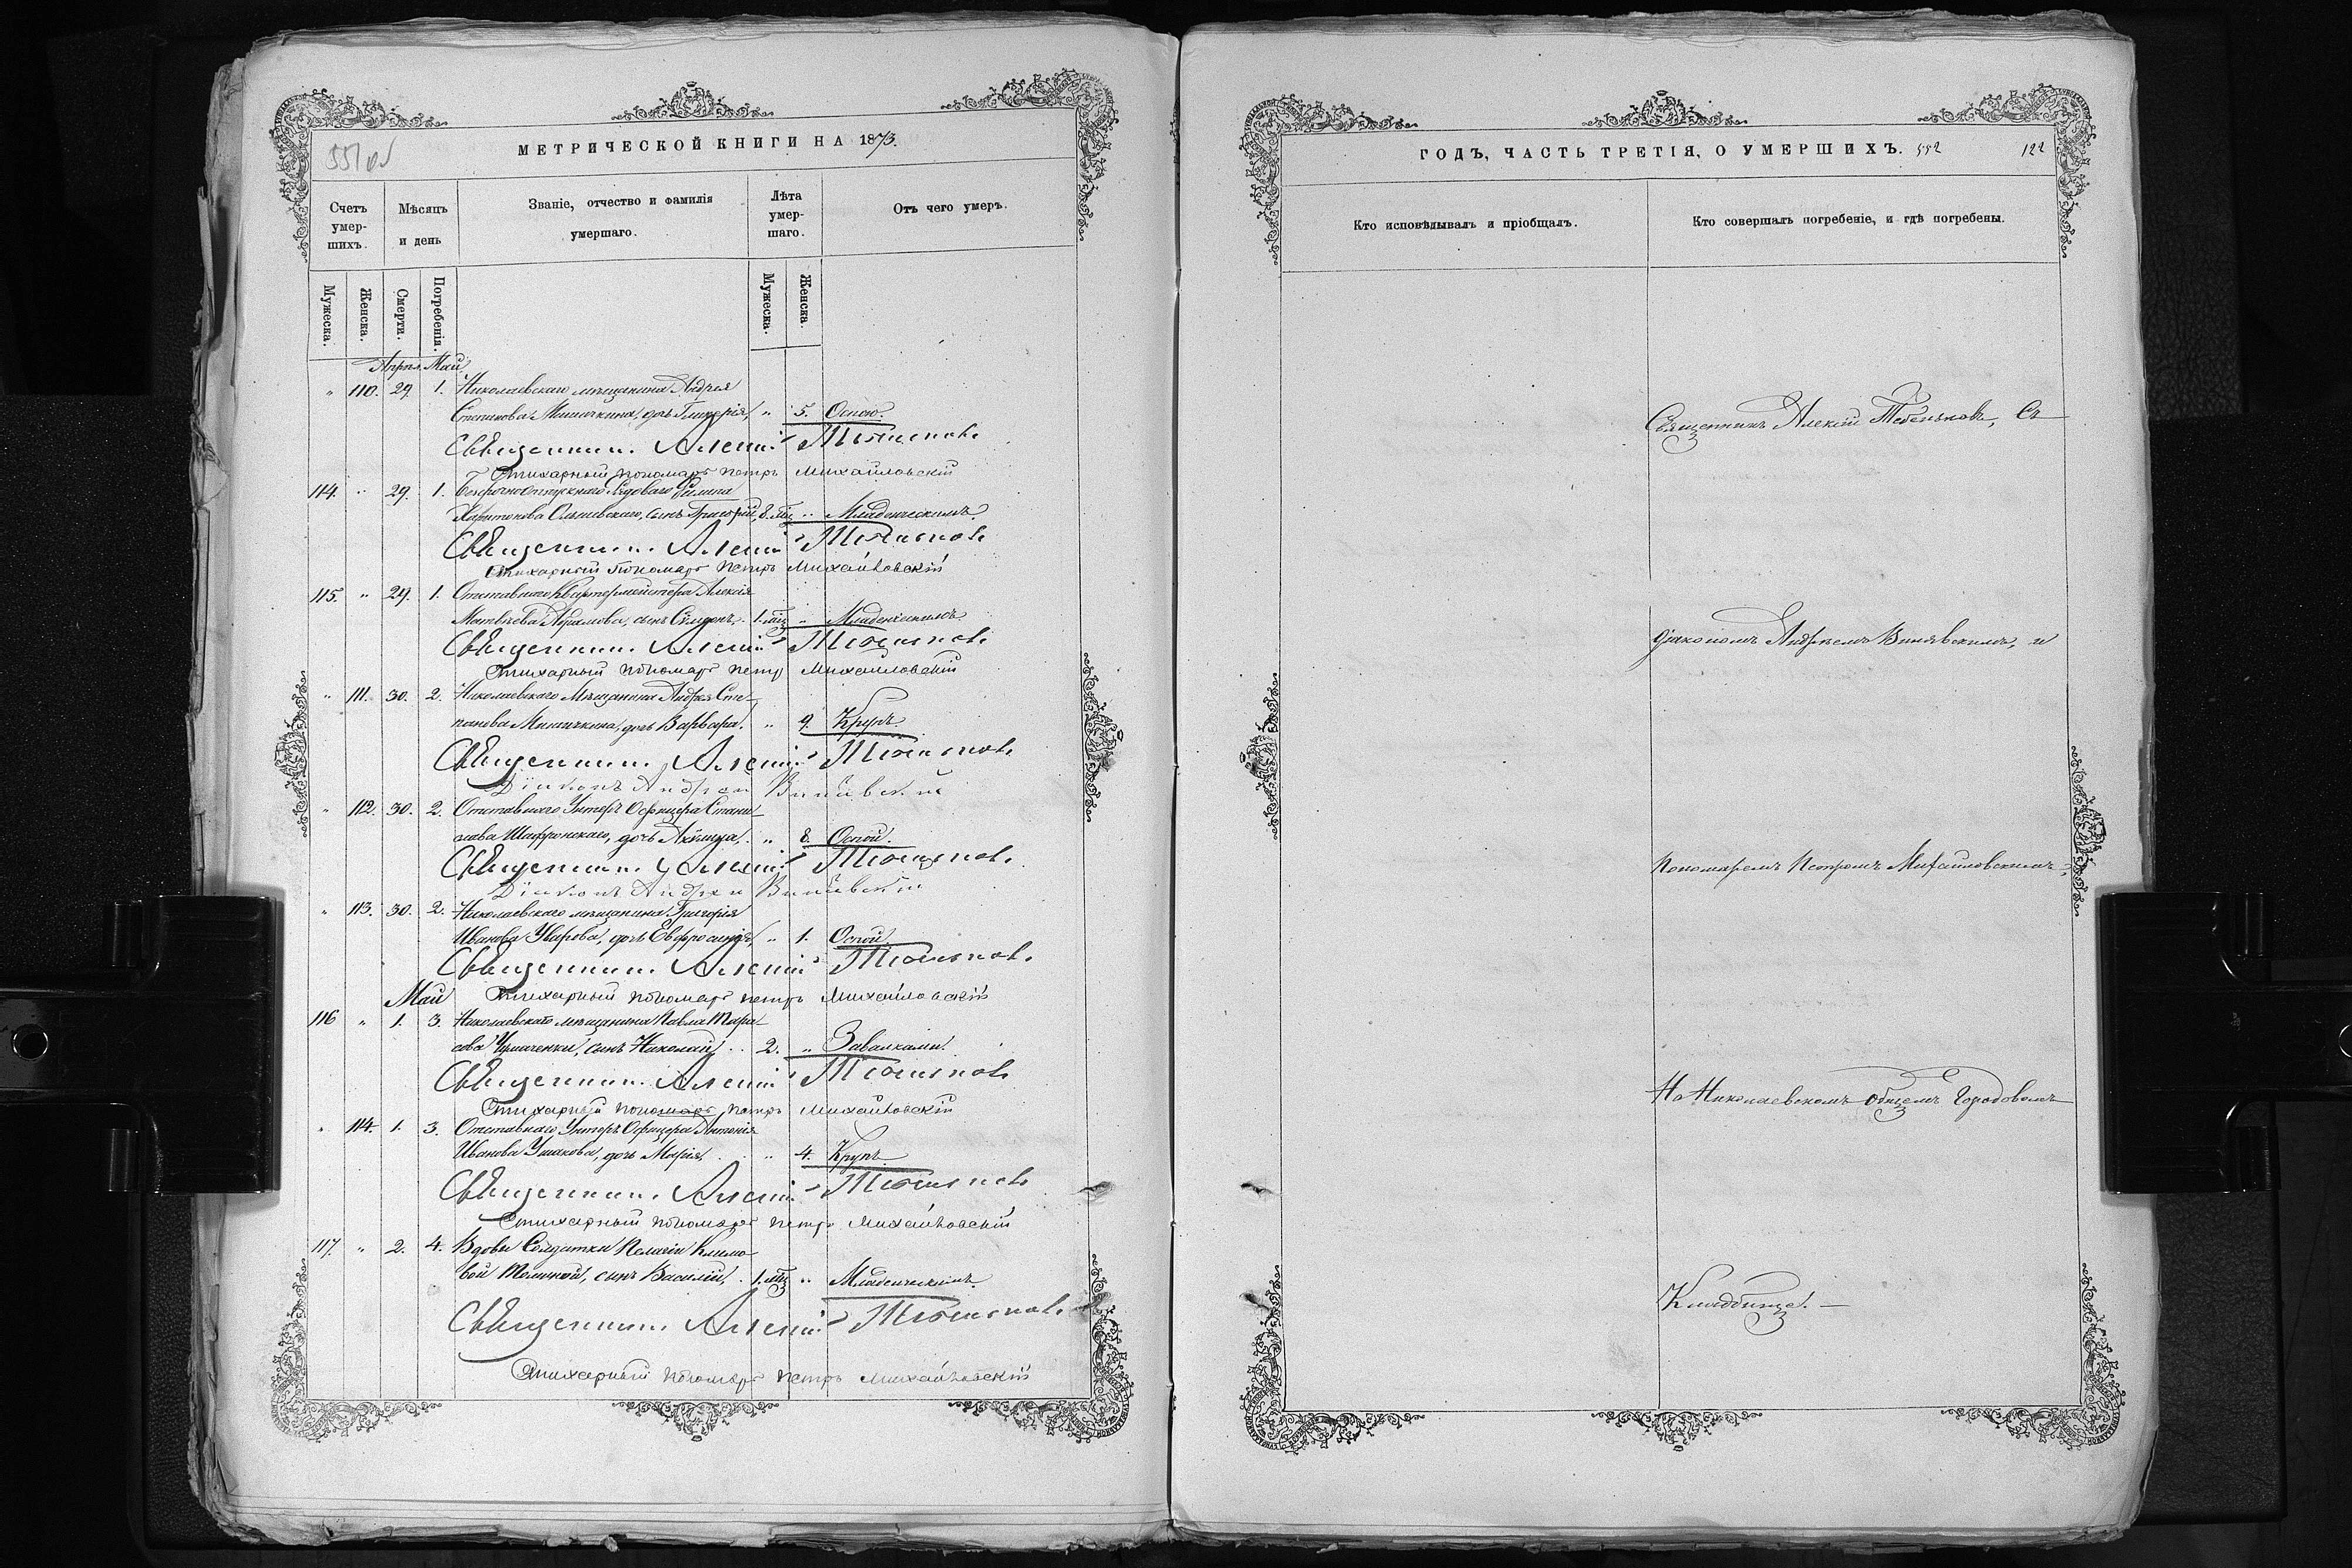 551 об
МЕТРИЧЕСКОЙ КНИГИ НА 1873.
Счетъ умер-шихъ.
Мѣсяцъ и день
Званіе, отчество и фамилія умершаго.
Лѣта умер-шаго.
Отъ чего умеръ.
Мужеска.
Женска.
Смерти.
Погребенія.
Мужеска.
Женска.
Май
" 110. 29. 1. Николаевскаго мѣщанина Андрея
дочь Гликерія, " 5. Оспою.
Священникъ Алексій
Стихарный пономарь Петръ Михайловскій
114. " 29. 1. Безсрочноотпускнаго Рядоваго Филипа
Харитонова сынъ Григорій, 8. мц " Младенческимъ.
Священникъ Алексій
Стихарный пономарь Петръ Михайловскій
115. " 29. 1. Отставнаго Квартермейстера Алексія
Матвѣева Абрамова, сынъ Сумеонъ. 1. мц " Младенческимъ
Священникъ Алексій
Стихарный пономарь Петръ Михайловскій
" 111. 30. 2. Николаевскаго Мѣщанина Андрея Сте-
панова дочь Варвара. " 9. Крупъ.
Священникъ Алексій
Діаконъ Андрей
" 112. 30. 2. Отставнаго Унтеръ Офицера Стани-
слава Шафронскаго, дочь " 8. Оспой.
Священникъ Алексій
Діаконъ Андрей
" 113. 30. 2. Николаевскаго мѣщанина Григорія
Иванова Уварова, дочь Евфросинія, " 1. Оспой
Священникъ Алексій
Май Стихарный пономарь Петръ Михайловскій
116 " 1. 3. Николаевскаго мѣщанина Павла Тара-
сова сынъ Николай 2. "
Священникъ Алексій
Стихарный пономарь Петръ Михайловскій
" 114. 1. 3. Отставнаго Унтеръ Офицера Антонія
Иванова Ушакова, дочь Марія. " 4. Крупъ
Священникъ Алексій
Стихарный пономарь Петръ Михайловскій
117. " 2. 4. Вдовы Солдатки Пелагіи Климо-
вой сынъ Василій, 1. мц " Младенческимъ.
Священникъ Алексій
Стихарный пономарь Петръ Михайловскій
ГОДЪ, ЧАСТЬ ТРЕТІЯ, О УМЕРШИХЪ. 552 122
Кто исповѣдывалъ и пріобщалъ.
Кто совершалъ погребеніе, и гдѣ погребены.
Священникъ Алексій Тебеньковъ, Съ
діакономъ Андреемъ и
Пономаремъ Петромъ Михайловскимъ,
На Николаевскомъ общемъ Городовомъ
Кладбищѣ. —